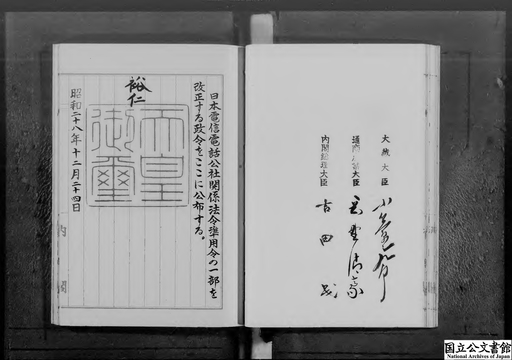 大蔵大臣 小笠原三九郎
通商産業大臣 岡野清豪
内閣総理大臣 吉田茂
日本電信電話公社関係法令準用令の一部を
改正する政令をここに公布する。
裕仁
天皇
御璽
昭和二十八年十二月二十四日
内閣
国立公文書館
National Archives of Japan